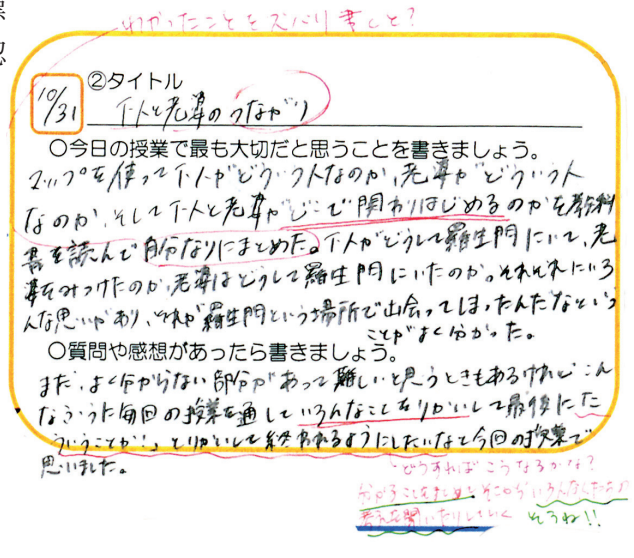 わかったことをズバリ書くと?
10/31
②タイトル
下人と老婆のつながり
○今日の授業で最も大切だと思うことを書きましょう。
マップを使って下人がどういう人なのか、老婆がどういう人
なのか、そして下人と老婆がどこで関わりはじめるのかを教科
書を読んで自分なりにまとめた。下人がどうして羅生門にいて、老
婆をみつけたのか、老婆はどうして羅生門にいたのか。それぞれにいろ
んな思いがあり、それが羅生門という場所で出会ってしまったんだなという
ことがよく分かった。
○質問や感想があったら書きましょう。
まだ、よく分からない部分があって難しいと思うときもあるけれど、こん
なふうに毎回の授業を通していろんなことをりかいして最後に
ういうことか!、とりかいして終われるようにしたいなと今回の授業で
思いました。
どうすればこうなるかな?
分かることをまとめて
考えを聞いたりしていく
そうね!!